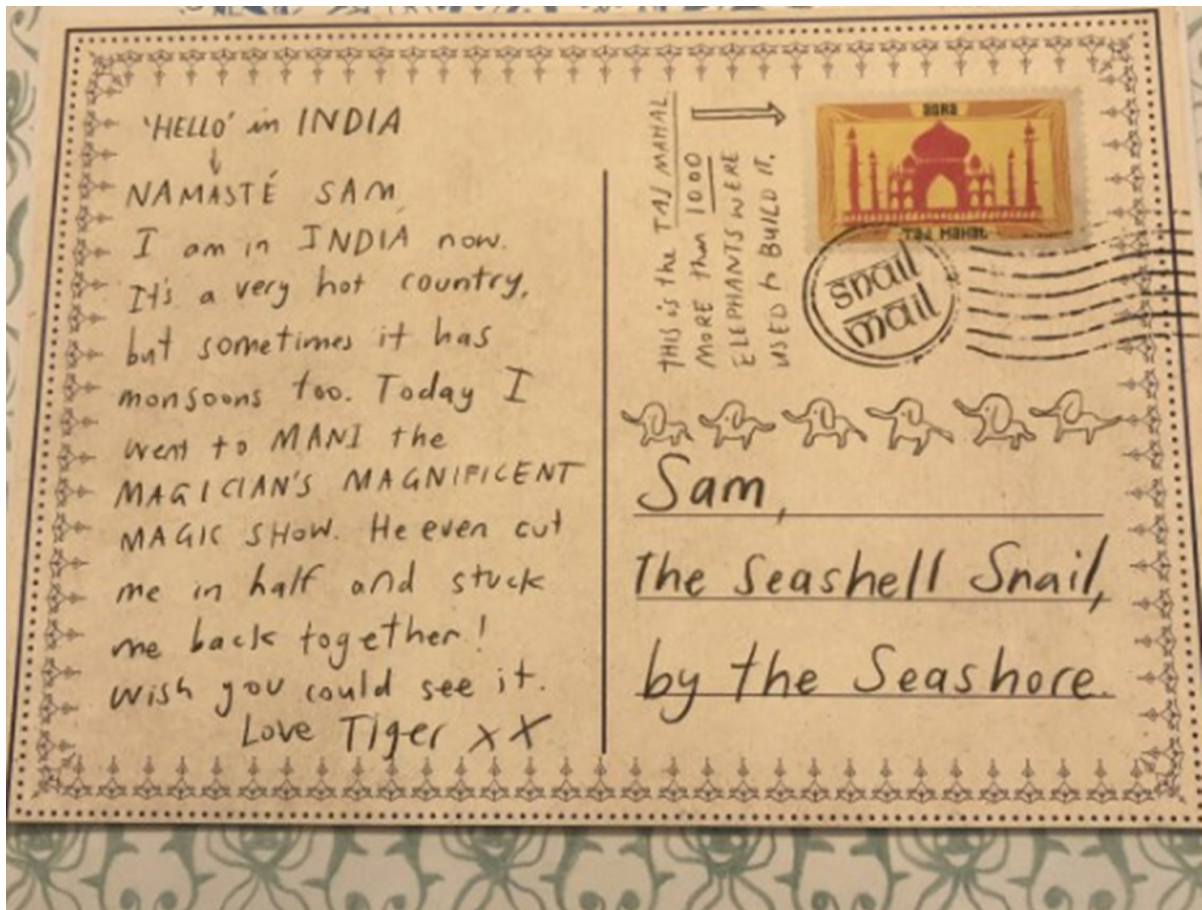 'HELLO' in INDIA
NAMASTÉ SAM
I am in INDIA now.
It's a very hot country,
but sometimes it has
monsoons too. Today I
went to MANI the
MAGICIAN'S MAGNIFICENT
MAGIC SHOW. He even cut
me in half and stuck
me back together!
Wish you could see it.
Love Tiger xx
THIS is the TAJ MAHAL
MORE than 1000
ELEPHANTS WERE
USED to BUILD IT.
AGRA
TAJ MAHAL
snail
mail
Sam,
The Seashell Snail,
by the Seashore.